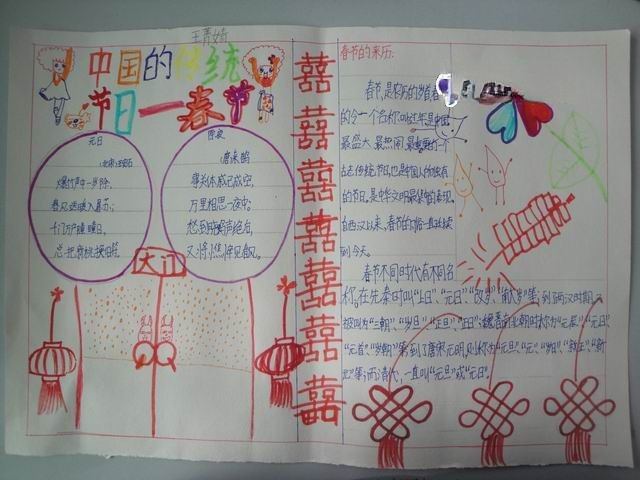 王青婷
中国的传统
节日一春节
元日
爆竹声中一岁除,
春风送暖入屠苏;
千门万户曈曈日,
总把新桃换旧符。
除夜
唐 来鹄
事关休戚已成空,
万里相思一夜中。
愁到晓鸡声绝后,
又将憔悴见春风。
大门
囍
囍
囍
囍
囍
囍
囍
春节的来历:
春节,是农历的
最盛大、最热闹、最重要的一个
古老传统节日,也是中国人所独有
的节日。是中华文明最集中的表现。
自西汉以来,春节的习俗一直延续
到今天。
春节不同时代有不同名
称。在先秦时叫“上日”、“元日”、“改岁”、“献岁”等;到了两汉时期,又
被叫为“三朝”、“岁旦”、“正旦”、“正日”;魏晋南北朝时称为“元辰”、“元日”、
“元首”、“岁朝”等;到了唐宋元明,则称为“元旦”、“元”、“岁日”、“新正”、“新
元”等;而清代,一直叫“元旦”或“元日”。